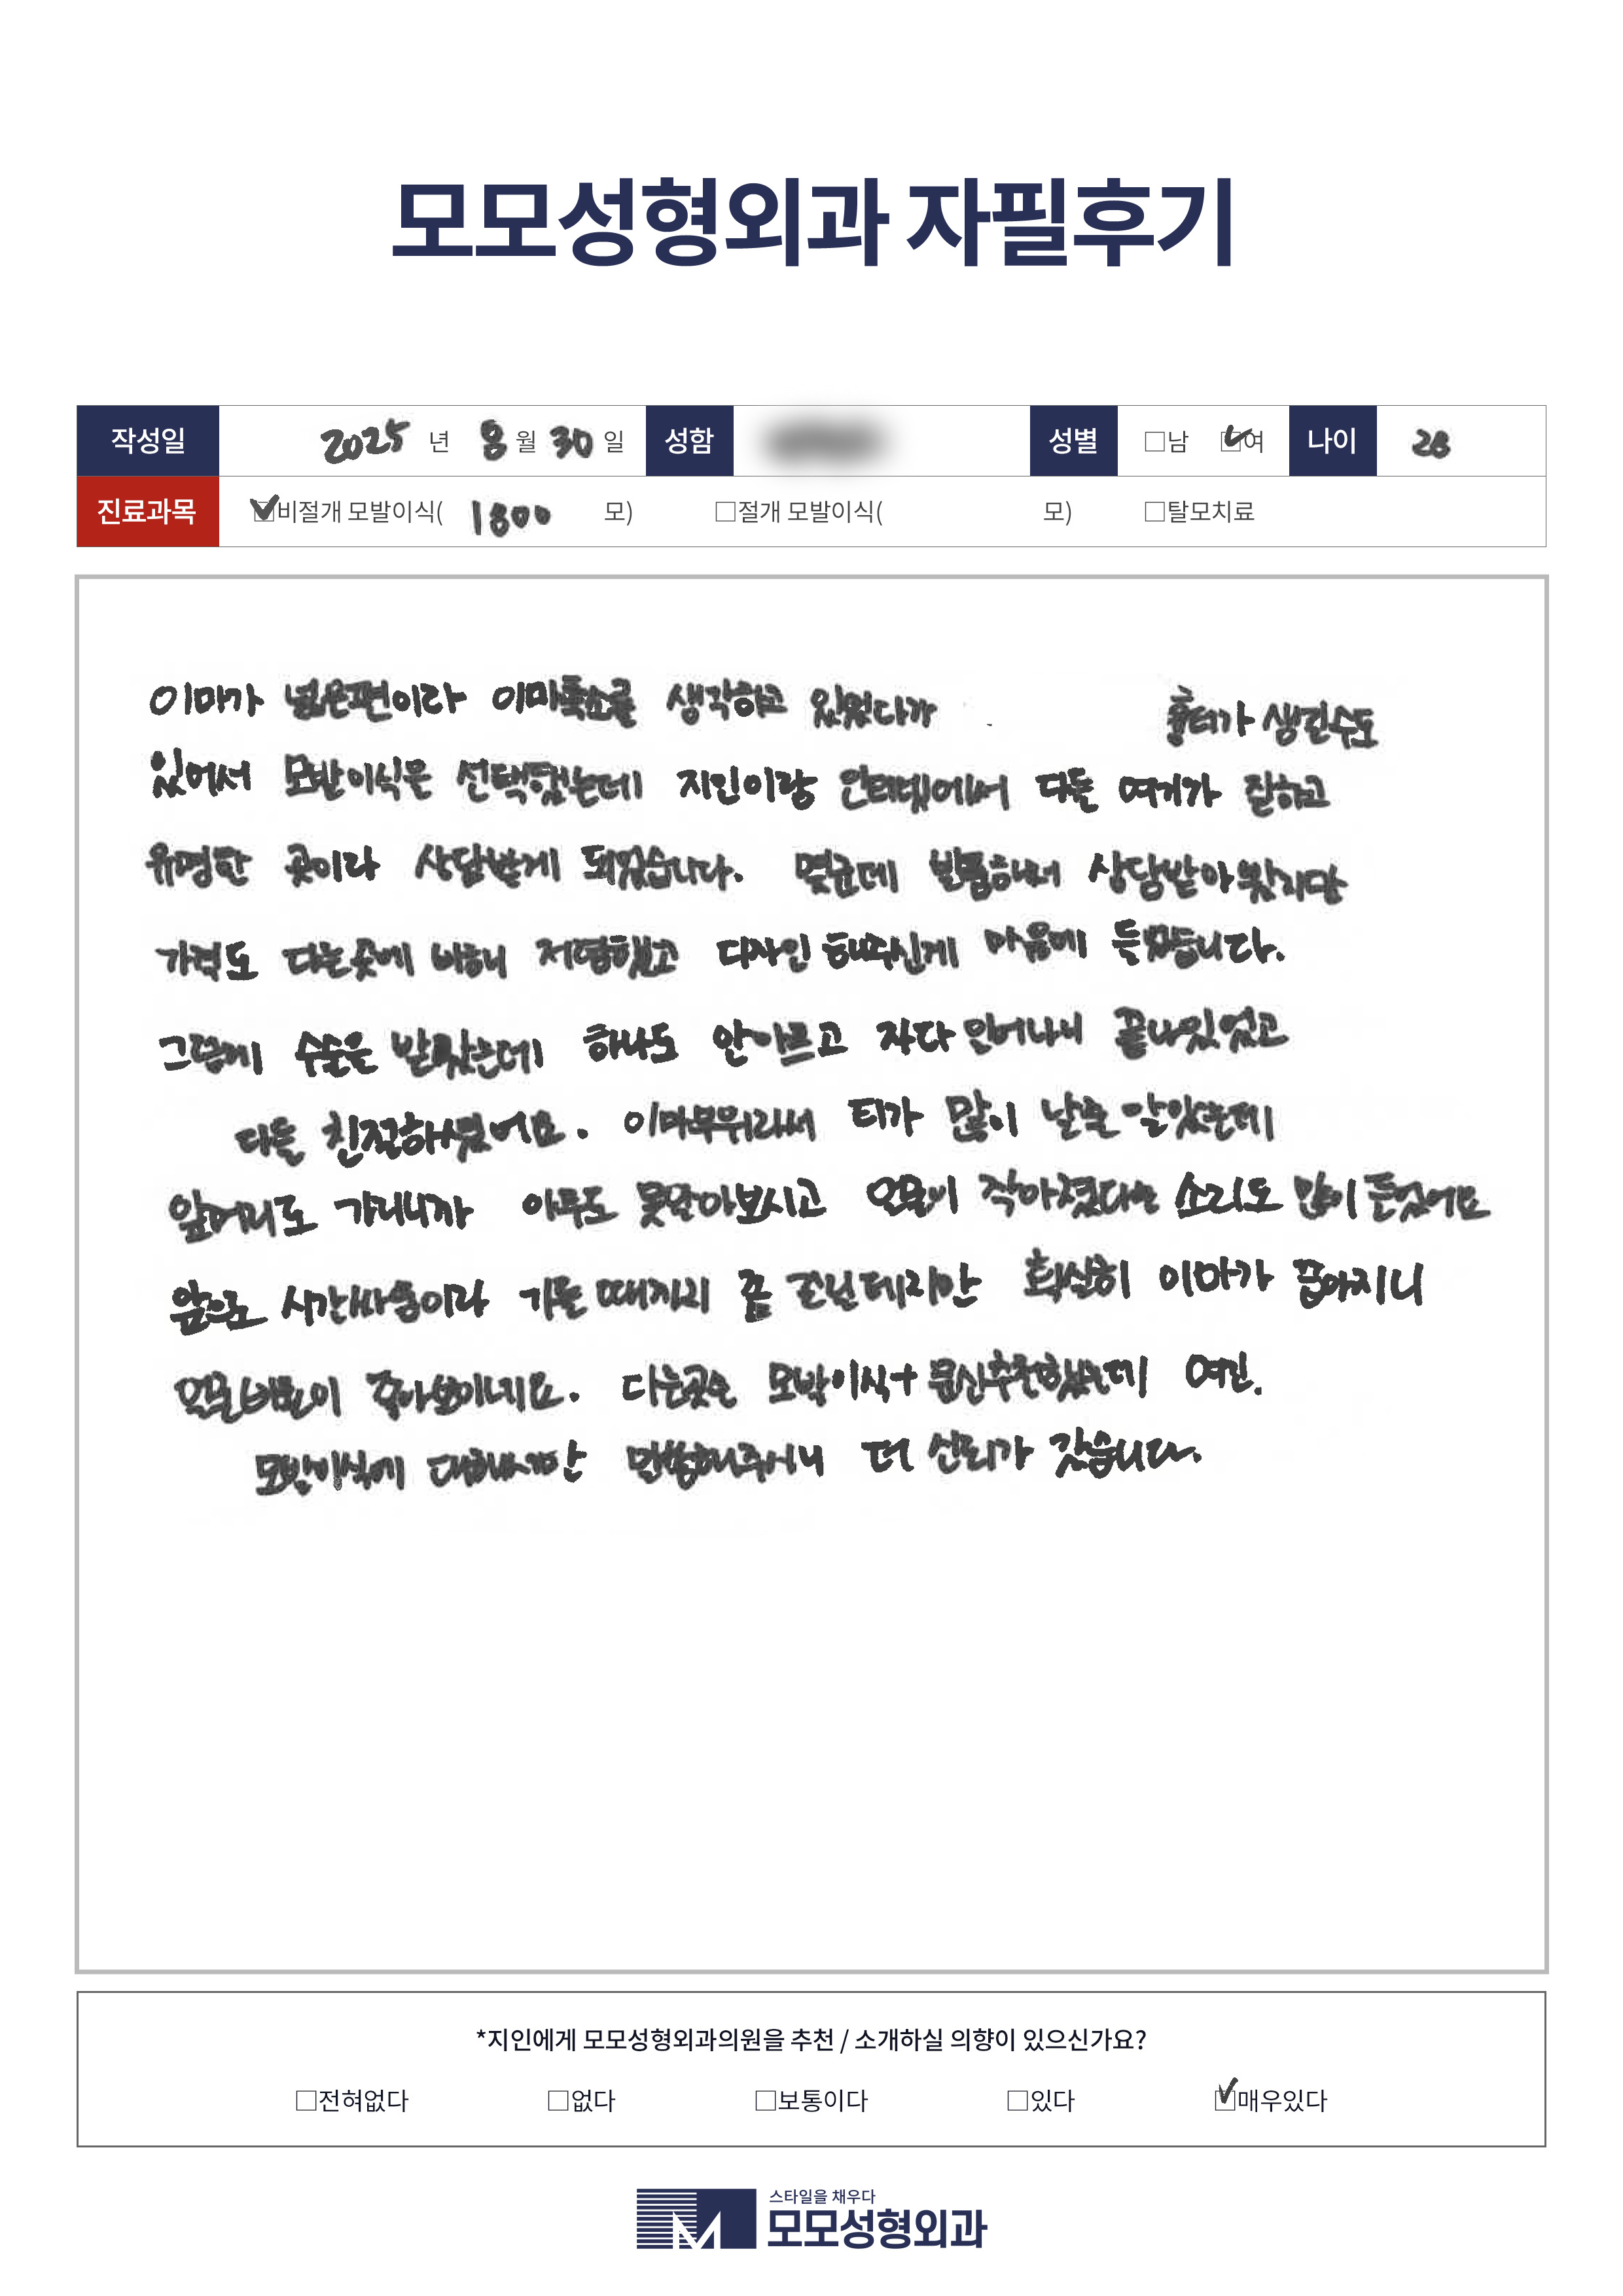 모모성형외과 자필후기
작성일 2025 년 8 월 30 일 성함 성별 □남 ☑여 나이 28
진료과목 ☑비절개 모발이식( 1800 모) □절개 모발이식( 모) □탈모치료
이마가 넓은편이라 이마축소를 생각하고 있었다가 흉터가 생길수도
있어서 모발이식은 선택했는데 지인이랑 인터넷에서 다들 여기가 잘하고
유명한 곳이라 상담받게 돼었습니다. 몇군데 발품해서 상담받아봤지만
가격도 다른곳에 비해 저렴했고 디자인 해주신게 마음에 들었습니다.
그담에 수술은 받았는데 하나도 안아프고 자다 일어나니 끝나있었고
다들 친절하셨어요. 이마부위라서 티가 많이 날줄 알았는데
앞머리도 가리니까 아무도 못알아보시고 얼굴이 작아졌다는 소리도 많이 들었어요
앞으로 시간싸움이라 기를 때까지 좀 걸릴테지만 확실히 이마가 좁아지니
얼굴비율이 좋아보이네요. 다른곳은 모발이식+문신추천했는데 여긴.
모발이식에 대해서만 말씀해주시니 더 신뢰가 갔습니다.
*지인에게 모모성형외과의원을 추천 / 소개하실 의향이 있으신가요?
□전혀없다 □없다 □보통이다 □있다 ☑매우있다
스타일을 채우다
모모성형외과